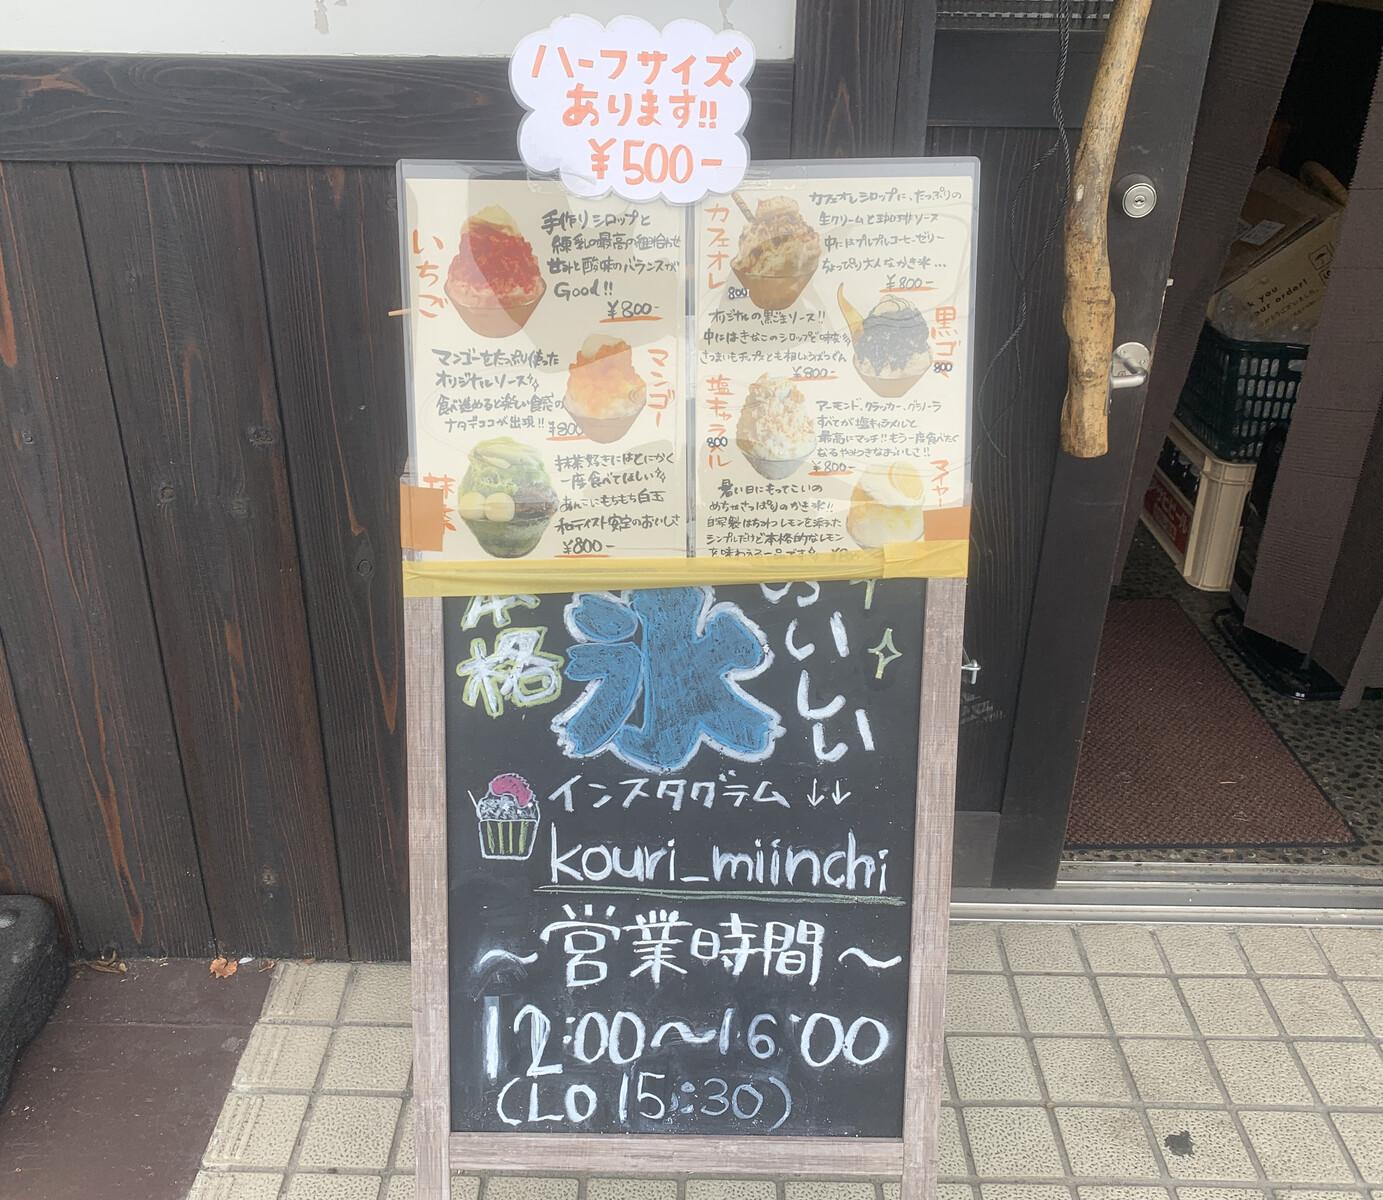 ハーフサイズ
あります!!
¥500-
いちご
手作りシロップと
練乳の最高の組合わせ
甘みと酸味のバランスが
Good!!
¥800-
マンゴーをたっぷり使った
オリジナルソース
食べ進めると楽しい食感の
ナタデココが出現!!
¥800
マンゴー
抹茶
抹茶好きにはとにかく
一度食べてほしい
あんこにもちもち白玉
和テイスト安定のおいしさ
¥800-
カフェオレ
800
カフェオレシロップに、たっぷりの
生クリームと珈琲ソース
中にはプルプルコーヒーゼリー
ちょっぴり大人なかき氷...
¥800-
オリジナルの黒ごまソース!!
中にはきなこのシロップで味変
さつまいもチップとも相しょうばつぐん
¥800-
黒ゴマ
800
塩キャラメル
800
アーモンド、クラッカー、グラノーラ
すべてが塩キャラメルと
最高にマッチ!!もう一度食べたく
なるやみつきなおいしさ!!
¥800-
マイヤー
暑い日にもってこいの
めちゃさっぱりのかき氷!!
自家製はちみつレモンを添えた
シンプルだけど本格的なレモン
を味わえる一品です
本格
氷
おいしい
インスタグラム ↓↓
kouri_miinchi
~営業時間~
12:00~16:00
(LO 15:30)
you
our order!